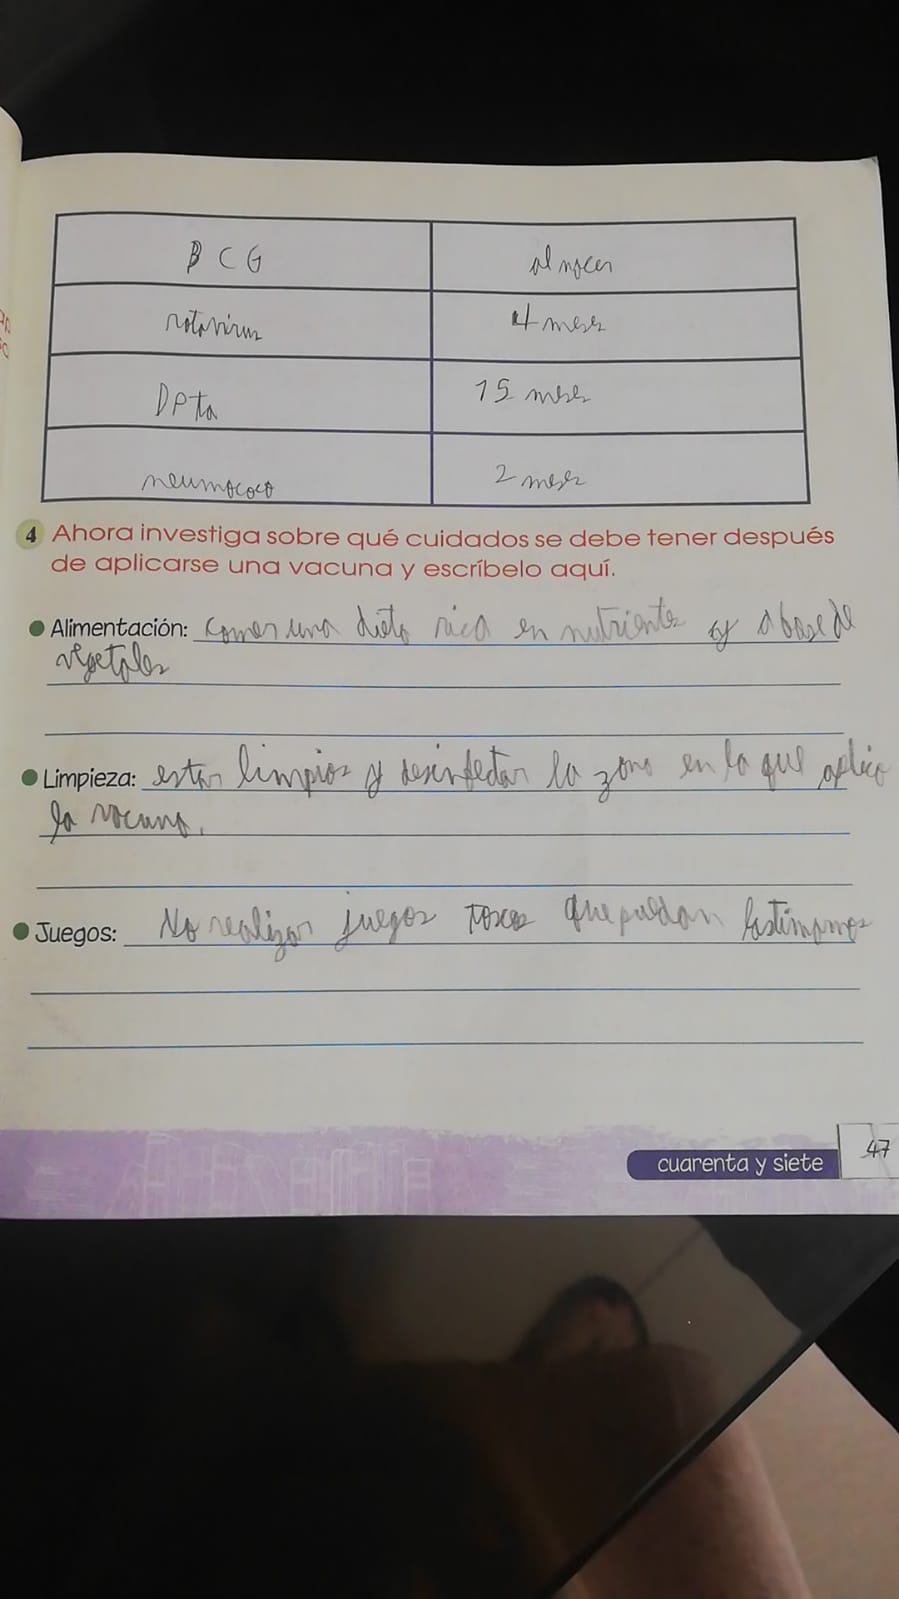 BCG al nacer
rotavirus 4 meses
Dpta 15 meses
neumococo 2 meses
4 Ahora investiga sobre qué cuidados se debe tener después
de aplicarse una vacuna y escríbelo aquí.
Alimentación: comer una dieta rica en nutriente y a base de
vegetales
Limpieza: estar limpios y desinfectar la zona en la que aplico
la vacuna.
Juegos: No realizar juegos toscos que puedan lastimarnos
cuarenta y siete 47